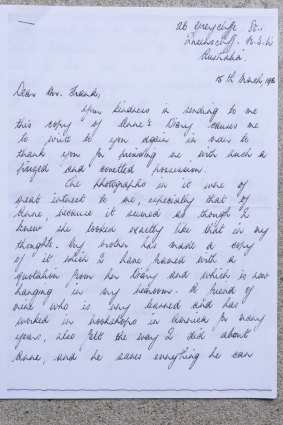 26 Greycliffe St.,
Queenscliff. N.S.W
Australia
15th March, 196
Dear Mr. Frank,
Your kindness in sending to me
this copy of Anne's Diary causes me
to write to you again in order to
thank you for providing me with such a
prized and coveted possession.
The photographs in it were of
great interest to me, especially that of
Anne, because it seemed as though I
knew she looked exactly like that in my
thoughts. My brother has made a copy
of it which I have framed with a
quotation from her Diary and which is now
hanging in my bedroom. A friend of
mine who is very learned and has
worked in bookshops in America for many
years, also felt the way I did about
Anne, and he saves everything he can